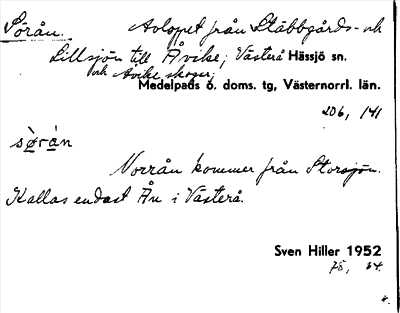 Sörån. Avloppet från Stäbbgårds- och
Lillsjön till Åvike; Västerå Hässjö sn.
och Åvike skogar;
Medelpads ö. doms. tg, Västernorrl. län.
206, 141
sö̀rá̀n
Norrån kommer från Storsjön.
Kallas endast Ån i Västerå.
Sven Hiller 1952
78, 64.